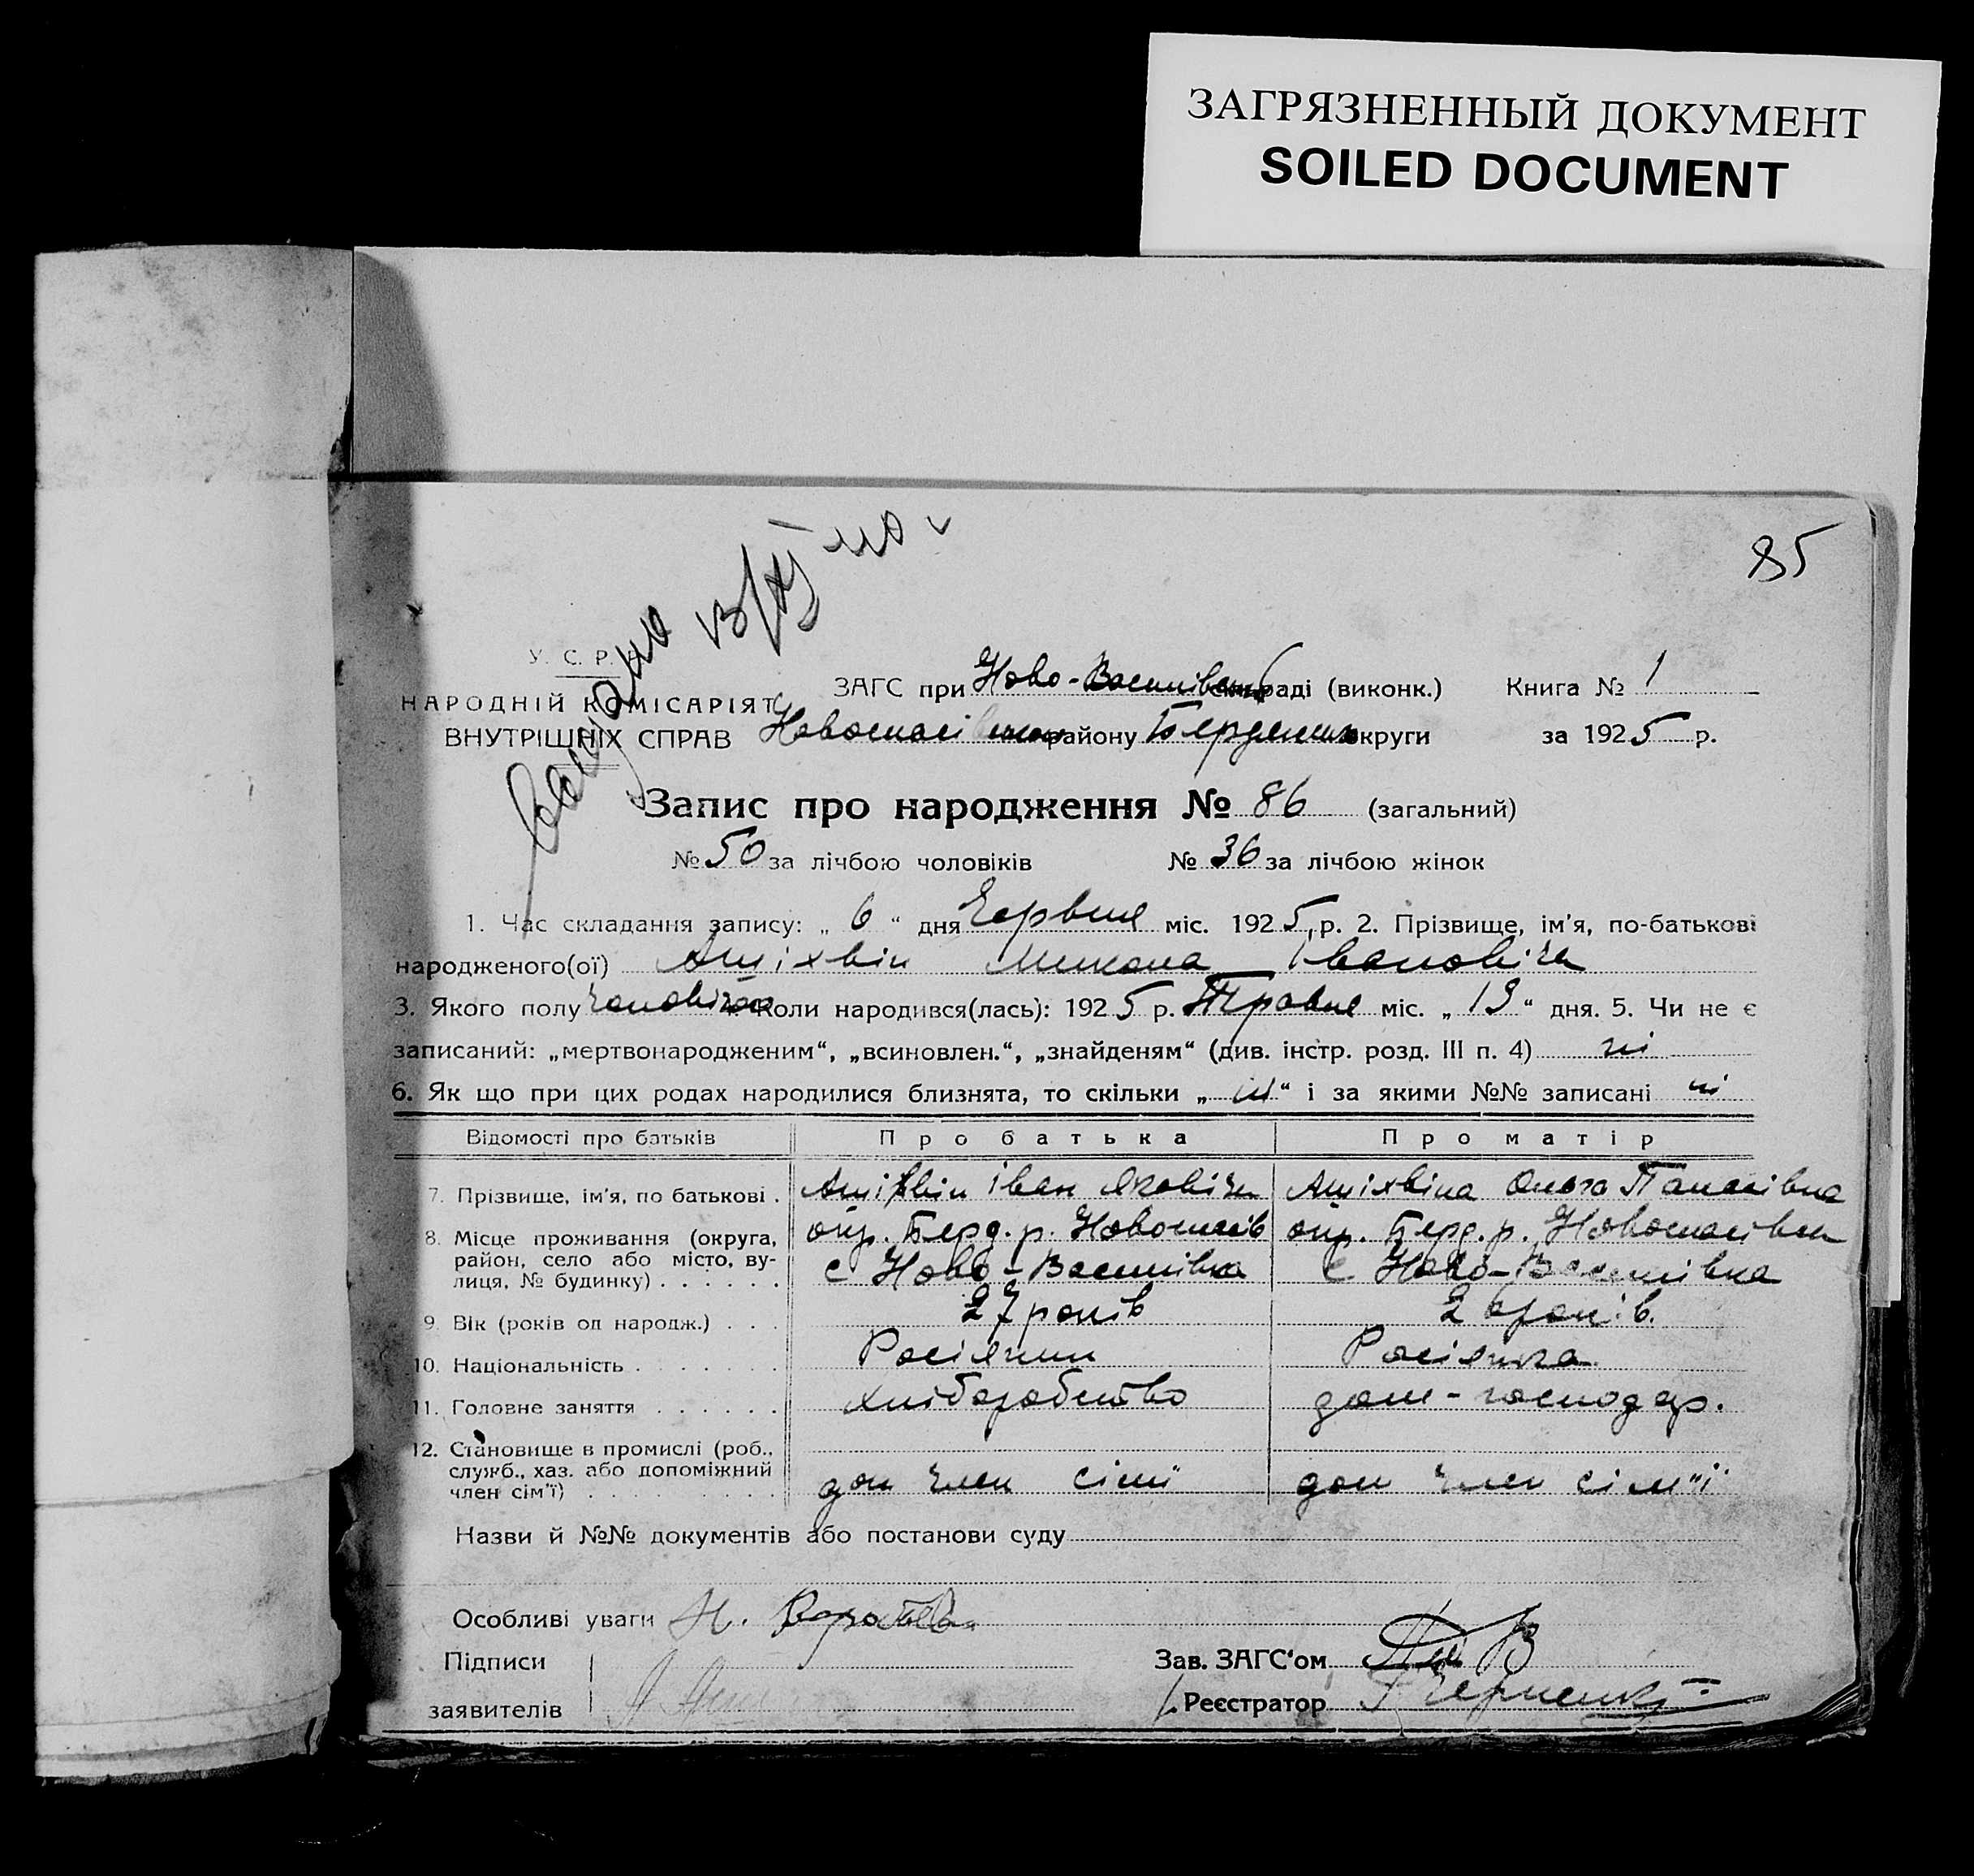 ЗАГРЯЗНЕННЫЙ ДОКУМЕНТ
SOILED DOCUMENT
85
У. С. Р. Р.
НАРОДНІЙ КОМІСАРІЯТ
ВНУТРІШНІХ СПРАВ
ЗАГС при Ново-Василівськ раді (виконк.) Книга № 1
Новоспасівськ району Бердянськ округи за 1925 р.
Запис про народження № 86 (загальний)
№ 50 за лічбою чоловіків № 36 за лічбою жінок
1. Час складання запису: „ 6 “ дня Червня міс. 1925 р. 2. Прізвище, ім'я, по-батькові
народженого(ої) Микола Івановіч
3. Якого полу чоловічого 4. Коли народився(лась): 1925 р. Травня міс. „ 19 “ дня. 5. Чи не є
записаний: „мертвонародженим“, „всиновлен.“, „знайденям“ (див. інстр. розд. III п. 4) ні
6. Як що при цих родах народилися близнята, то скільки „ ні “ і за якими №№ записані ні
Відомості про батьків Про батька Про матір
7. Прізвище, ім'я, по батькові . Іван Яковіч Панасівна
8. Місце проживання (округа, район, село або місто, вулиця, № будинку) . . . . . . окр. Берд. р. Новоспасів с Ново-Василівка окр. Берд. р. Новоспасівськ с Ново-Василівка
9. Вік (років од народж.) . . . 27 років 26 років.
10. Національність . . . . . Росіянин Росіянка
11. Головне заняття . . . . . . хліборобство дом-господар.
12. Становище в промислі (роб., служб., хаз. або допоміжний член сім'ї) . . . . . . . . . доп член сімї доп член сім"ї
Назви й №№ документів або постанови суду
Особливі уваги Н.
Підписи
заявителів
Зав. ЗАГС'ом
Реєстратор